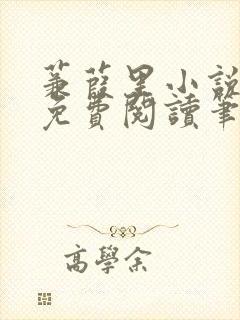 蒹葭里小說
免費閱讀筆
高學余